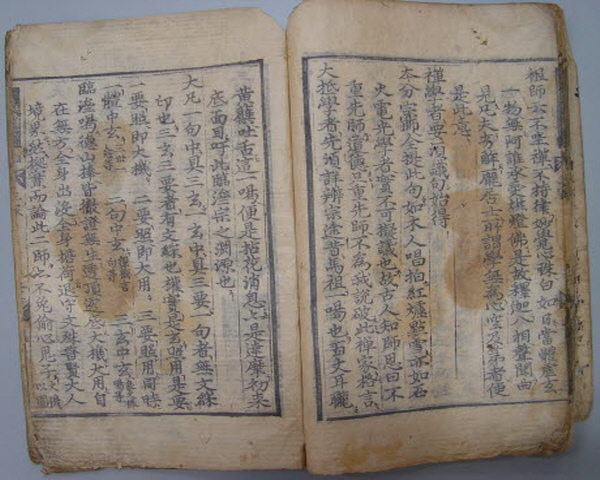 祖師云不坐禪不持律妙覺心珠白如日當體
一物無阿誰承受燃燈佛是故釋迦人相聲聞曲
見也夫方解龐居士所謂學無爲心空及第者便
是此意
禪學者要須識句始得
本分宗師全提此句如木人唱拍紅爐點雪亦如石
火電光學者實不可擬議也故古人知師恩曰不
重先師道德只重先師不爲我說破此禪家格言
大抵學者先須詳辨宗途昔馬祖一喝也百丈耳聾
黃蘗吐舌這一喝便是拈花消息上是達摩初來
底面目吁此臨濟宗之淵源也
大凡一句中具三玄一玄中具三要一句者無文綵
印也三玄三要者有文綵也權實是玄照用是要
一要照即大機 二要照即大用 三要照用同時
一體中玄 二句中玄 三玄中玄
臨濟喝德山棒皆徹證無生透頂透底大機大用自
在無方全身出沒全身擔荷退守文殊普賢大人
境界然據實而論此二師不免偷心